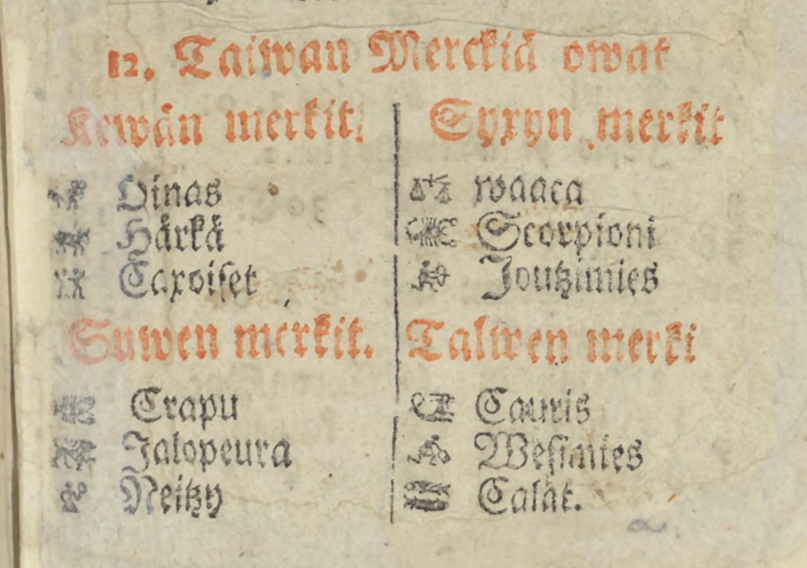 12. Taiwan Merckiä owat
Kewän merkit:
Oinas
Härkä
Caxoiset
Suwen merkit.
Crapu
Jalopeura
Neitzy
Syxyn merkit
waaca
Scorpioni
Joutzimies
Talwen merki
Cauris
Wesimies
Calat.